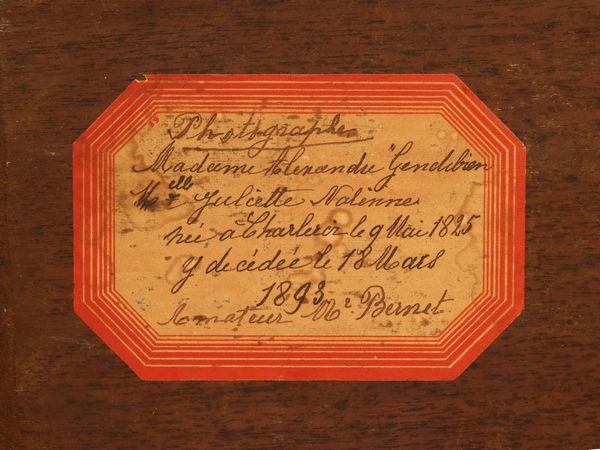 Photographe
Madame Alexandre Gendebien
Melle Juliette Nalinne
née à Charleroi le 9 Mai 1825
y décédée le 18 Mars
1893
Amateur Mr. Bernet